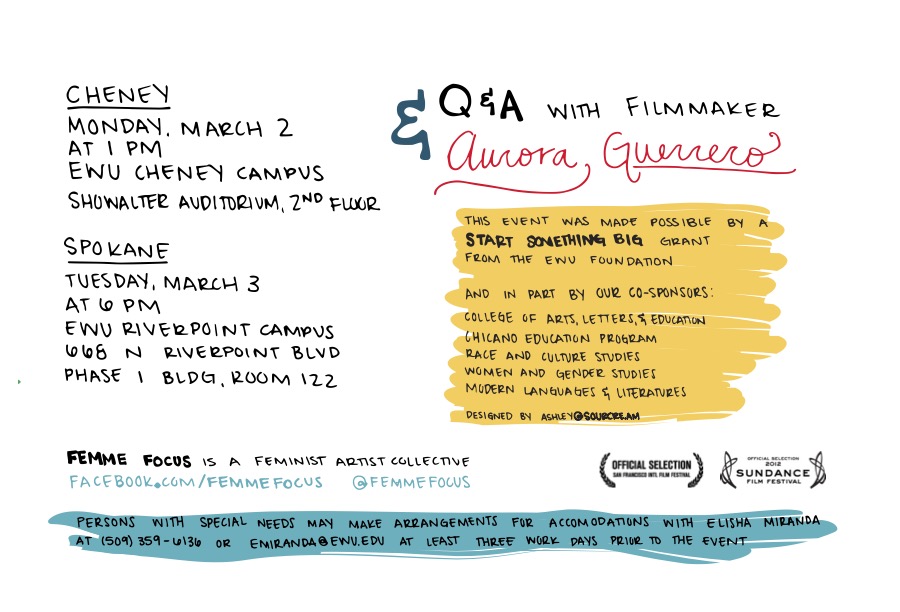 CHENEY
MONDAY, MARCH 2
AT 1 PM
EWU CHENEY CAMPUS
SHOWALTER AUDITORIUM, 2ND FLOOR
SPOKANE
TUESDAY, MARCH 3
AT 6 PM
EWU RIVERPOINT CAMPUS
668 N RIVERPOINT BLVD
PHASE 1 BLDG, ROOM 122
& Q&A WITH FILMMAKER
Aurora Guerrero
THIS EVENT WAS MADE POSSIBLE BY A
START SOMETHING BIG GRANT
FROM THE EWU FOUNDATION
AND IN PART BY OUR CO-SPONSORS:
COLLEGE OF ARTS, LETTERS, & EDUCATION
CHICANO EDUCATION PROGRAM
RACE AND CULTURE STUDIES
WOMEN AND GENDER STUDIES
MODERN LANGUAGES & LITERATURES
DESIGNED BY ASHLEY@SOURCRE.AM
FEMME FOCUS IS A FEMINIST ARTIST COLLECTIVE
FACEBOOK.COM/FEMMEFOCUS @FEMMEFOCUS
OFFICIAL SELECTION
SAN FRANCISCO INTL FILM FESTIVAL
OFFICIAL SELECTION
2012
SUNDANCE
FILM FESTIVAL
PERSONS WITH SPECIAL NEEDS MAY MAKE ARRANGEMENTS FOR ACCOMODATIONS WITH ELISHA MIRANDA
AT (509) 359-6136 OR EMIRANDA@EWU.EDU AT LEAST THREE WORK DAYS PRIOR TO THE EVENT